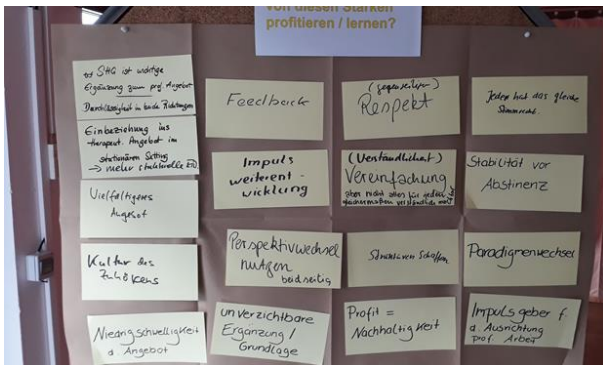 von diesen Stärken
profitieren / lernen?
SHG ist wichtige
Ergänzung zum prof. Angebot
Durchlässigkeit in beide Richtungen
Einbeziehung ins
therapeut. Angebot im
stationären Setting
→ mehr
Vielfältigeres
Angebot
Kultur des
Zuhörens
Niedrigschwelligkeit
d. Angebot
Feedback
Impuls
weiterent-
wicklung
Perspektivwechsel
nutzen
beidseitig
unverzichtbare
Ergänzung /
Grundlage
(gegenseitiger)
Respekt
(Verständlichkeit)
Vereinfachung
aber nicht alles für jeden
gleichermaßen verständlich
Strukturen Schaffen
Profit =
Nachhaltigkeit
Jeder hat das gleiche
Stimmrecht.
Stabilität vor
Abstinenz
Paradigmenwechsel
Impulsgeber f.
d. Ausrichtung
prof. Arbeit